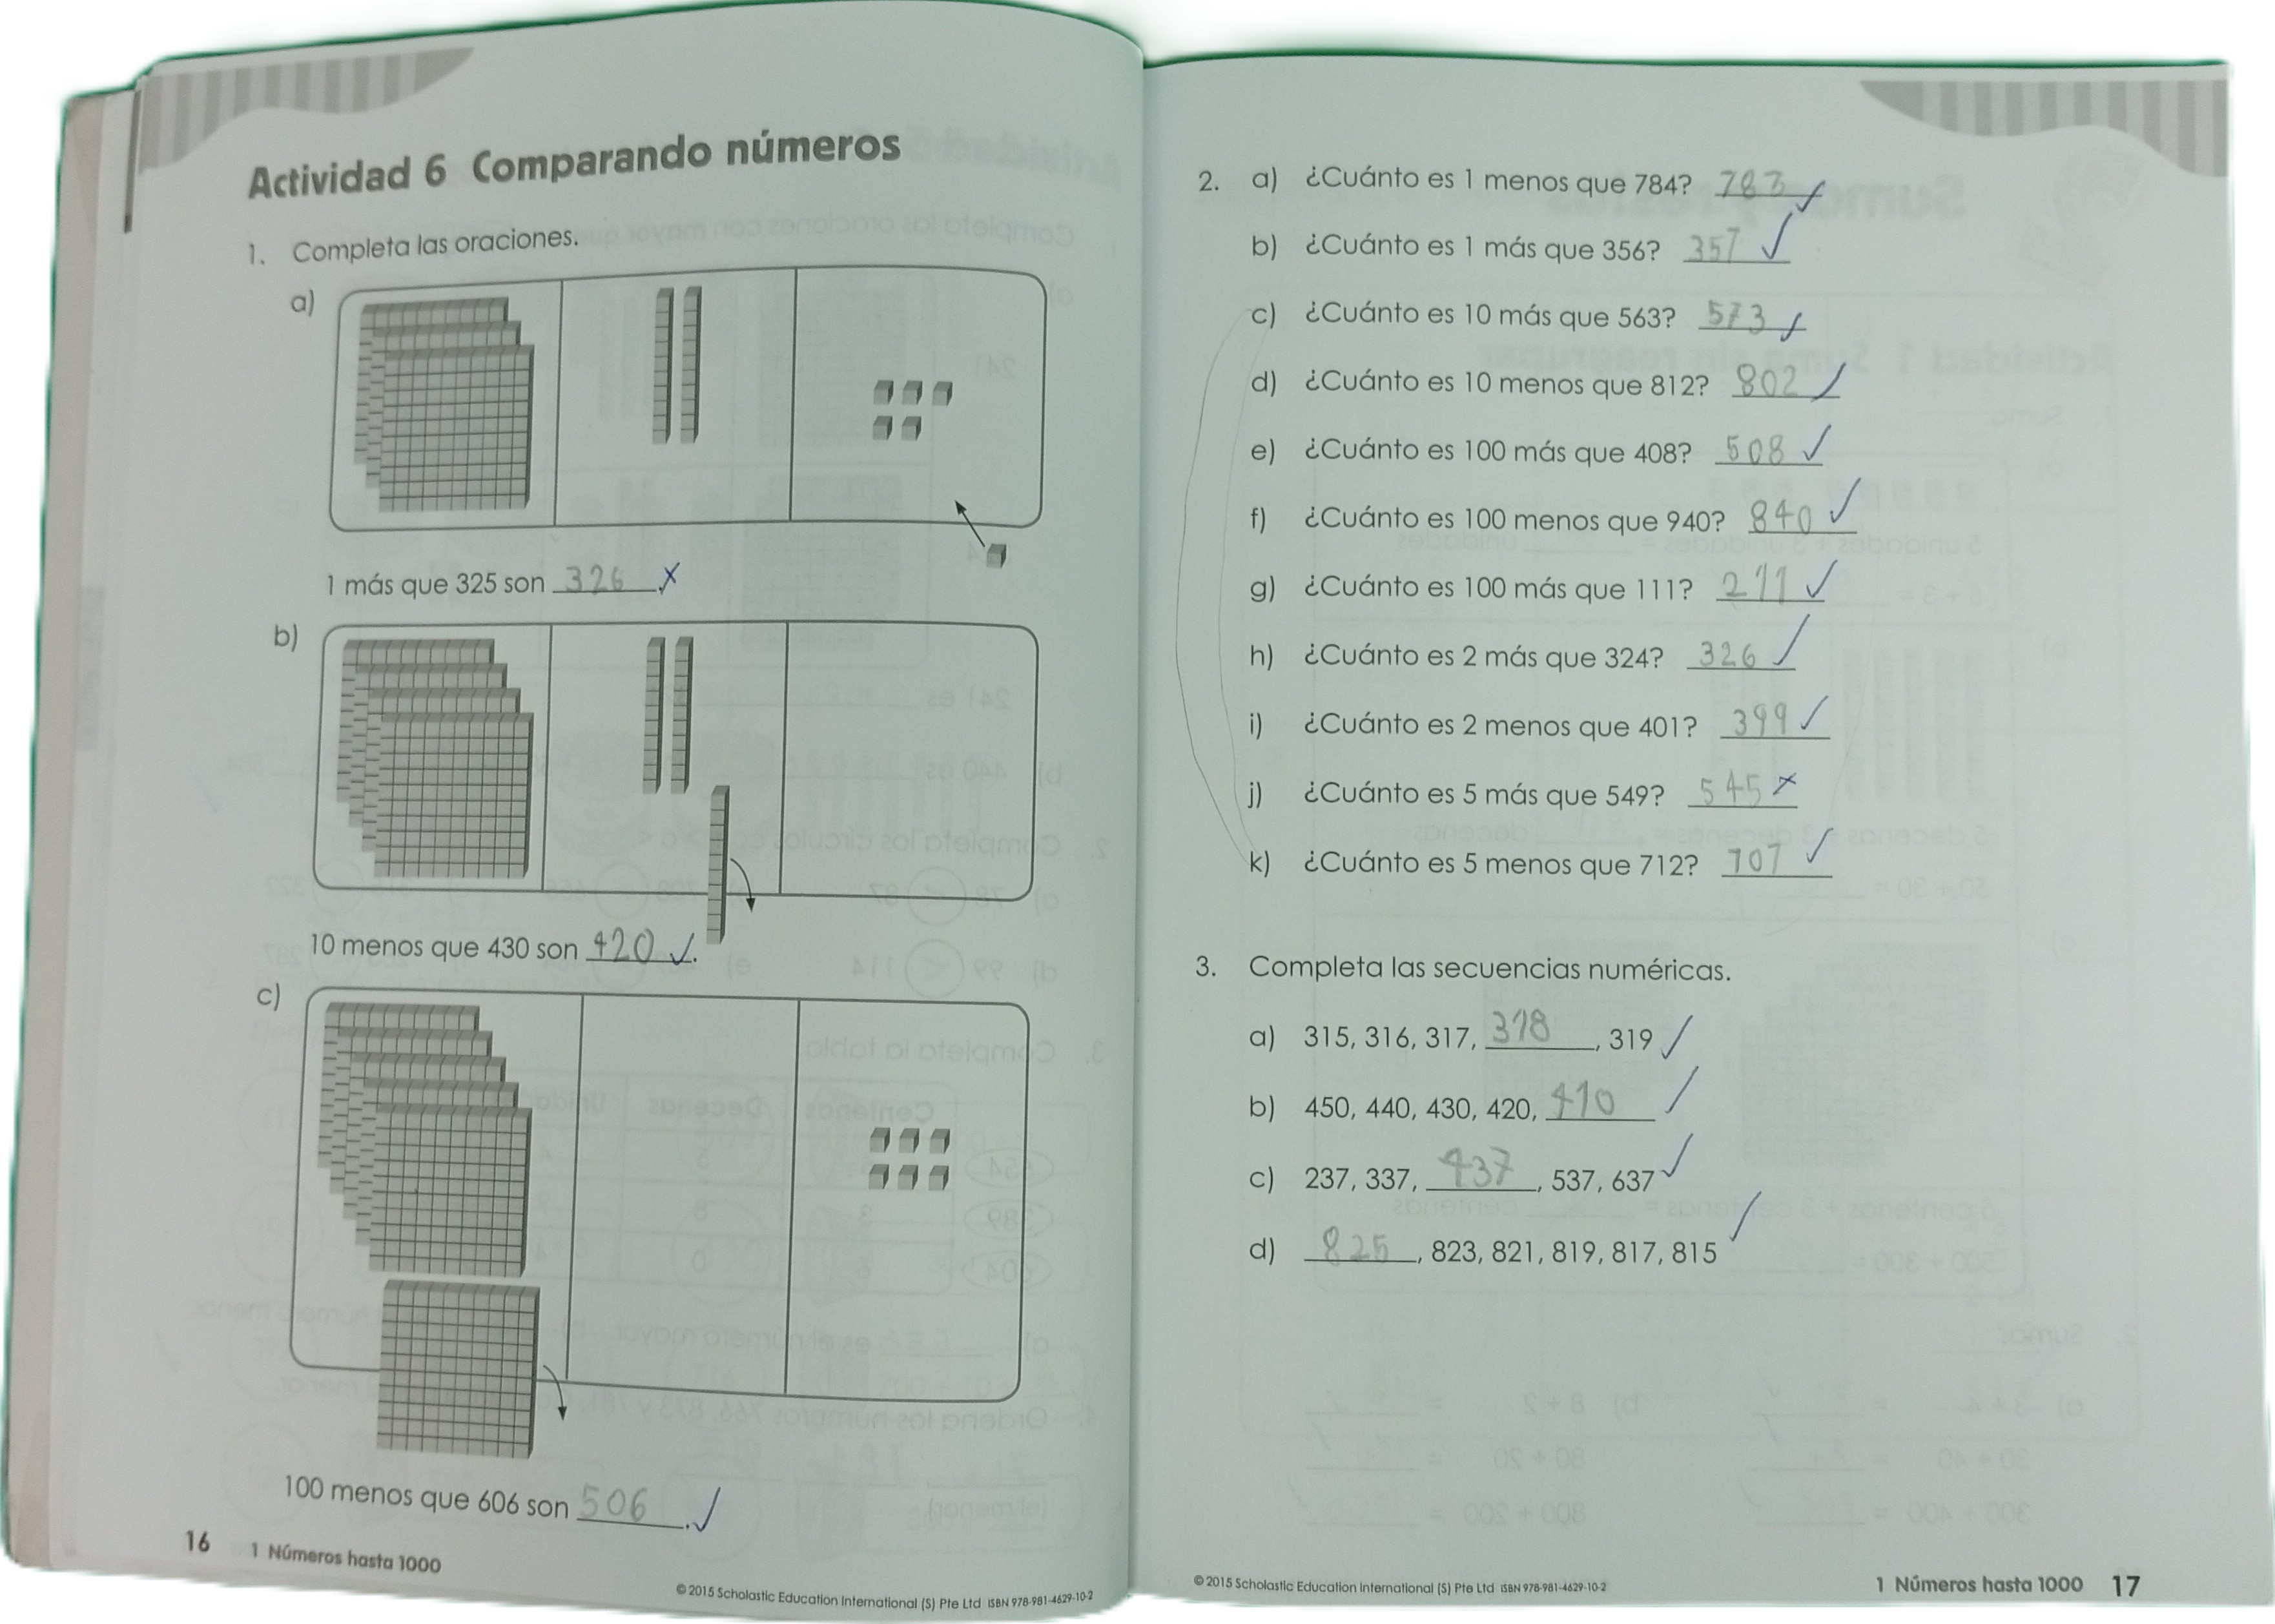 Actividad 6 Comparando números
1. Completa las oraciones.
a)
1 más que 325 son 326.
b)
10 menos que 430 son 420.
c)
100 menos que 606 son 506.
16 1 Números hasta 1000
© 2015 Scholastic Education International (S) Pte Ltd ISBN 978-981-4629-10-2
2. a) ¿Cuánto es 1 menos que 784? 783
b) ¿Cuánto es 1 más que 356? 357
c) ¿Cuánto es 10 más que 563? 573
d) ¿Cuánto es 10 menos que 812? 802
e) ¿Cuánto es 100 más que 408? 508
f) ¿Cuánto es 100 menos que 940? 840
g) ¿Cuánto es 100 más que 111? 211
h) ¿Cuánto es 2 más que 324? 326
i) ¿Cuánto es 2 menos que 401? 399
j) ¿Cuánto es 5 más que 549? 545
k) ¿Cuánto es 5 menos que 712? 707
3. Completa las secuencias numéricas.
a) 315, 316, 317, 318, 319
b) 450, 440, 430, 420, 410
c) 237, 337, 437, 537, 637
d) 825, 823, 821, 819, 817, 815
© 2015 Scholastic Education International (S) Pte Ltd ISBN 978-981-4629-10-2
1 Números hasta 1000 17